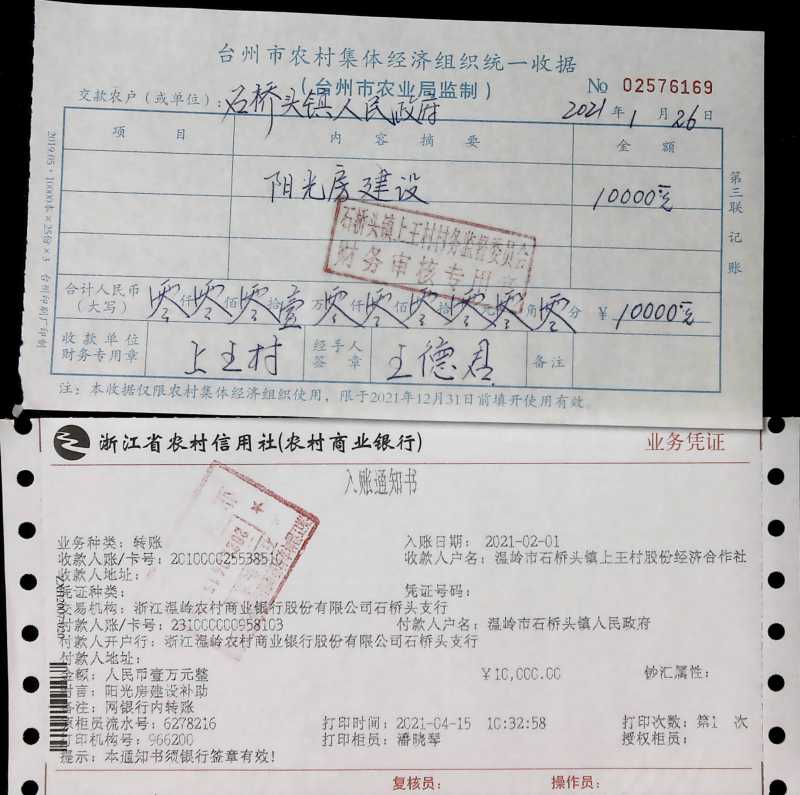 台州市农村集体经济组织统一收据
(台州市农业局监制)
No 02576169
交款农户(或单位):石桥头镇人民政府
2021年1月26日
项目 内容摘要 金额
阳光房建设 10000元
石桥头镇上王村村务监督委员会
财务审核专用章
合计人民币(大写) 零仟零佰零拾壹万零仟零佰零拾零元零角零分 ¥10000元
收款单位财务专用章 上王村 经手人签章 王德君 备注
注:本收据仅限农村集体经济组织使用,限于2021年12月31日前填开使用有效。
第三联 记账
2019.05·10000本×25份×3 台州印刷厂印制
浙江省农村信用社(农村商业银行) 业务凭证
入账通知书
业务种类:转账 入账日期:2021-02-01
收款人账/卡号:201000025538510 收款人户名:温岭市石桥头镇上王村股份经济合作社
收款人地址:
凭证种类: 凭证号码:
交易机构:浙江温岭农村商业银行股份有限公司石桥头支行
付款人账/卡号:231000000958103 付款人户名:温岭市石桥头镇人民政府
付款人开户行:浙江温岭农村商业银行股份有限公司石桥头支行
付款人地址:
金额:人民币壹万元整 ¥10,000.00 钞汇属性:
附言:阳光房建设补助
备注:网银行内转账
原柜员流水号:6278216 打印时间:2021-04-15 10:32:58 打印次数:第1 次
打印机构号:966200 打印柜员:潘晓琴 授权柜员:
提示:本通知书须银行签章有效!
复核员: 操作员: